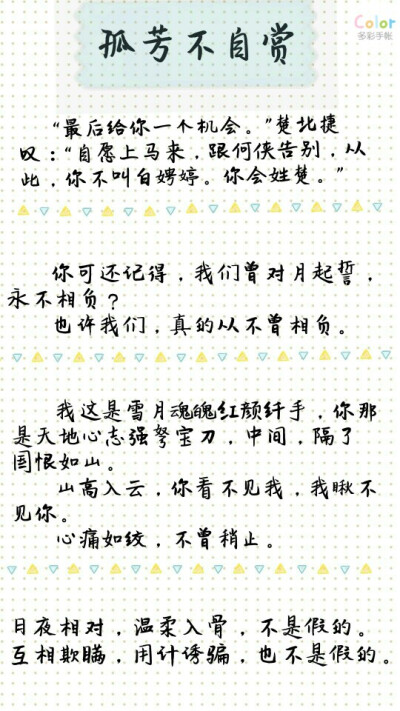 Color
多彩手帐
孤芳不自赏
“最后给你一个机会。”楚北捷
叹：“自愿上马来，跟何侠告别，从
此，你不叫白娉婷。你会姓楚。”
你可还记得，我们曾对月起誓，
永不相负？
也许我们，真的从不曾相负。
我这是雪月魂魄红颜纤手，你那
是天地心志强弩宝刀，中间，隔了
国恨如山。
山高入云，你看不见我，我瞅不
见你。
心痛如绞，不曾稍止。
日夜相对，温柔入骨，不是假的。
互相欺瞒，用计诱骗，也不是假的。